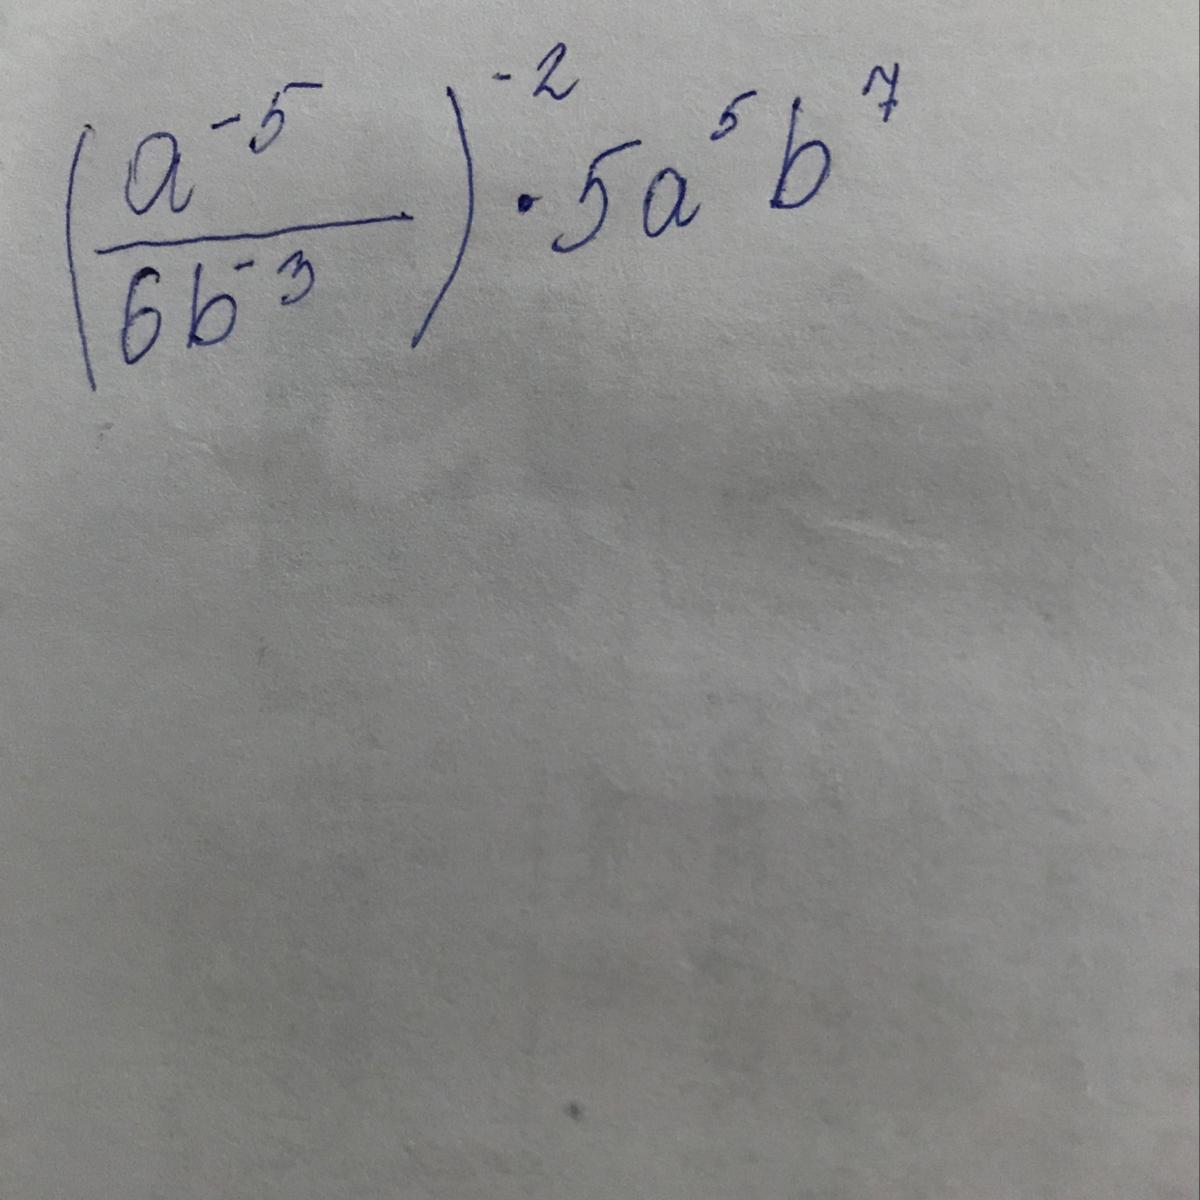 (a⁻⁵ / 6b⁻³)⁻² · 5a⁵b⁷